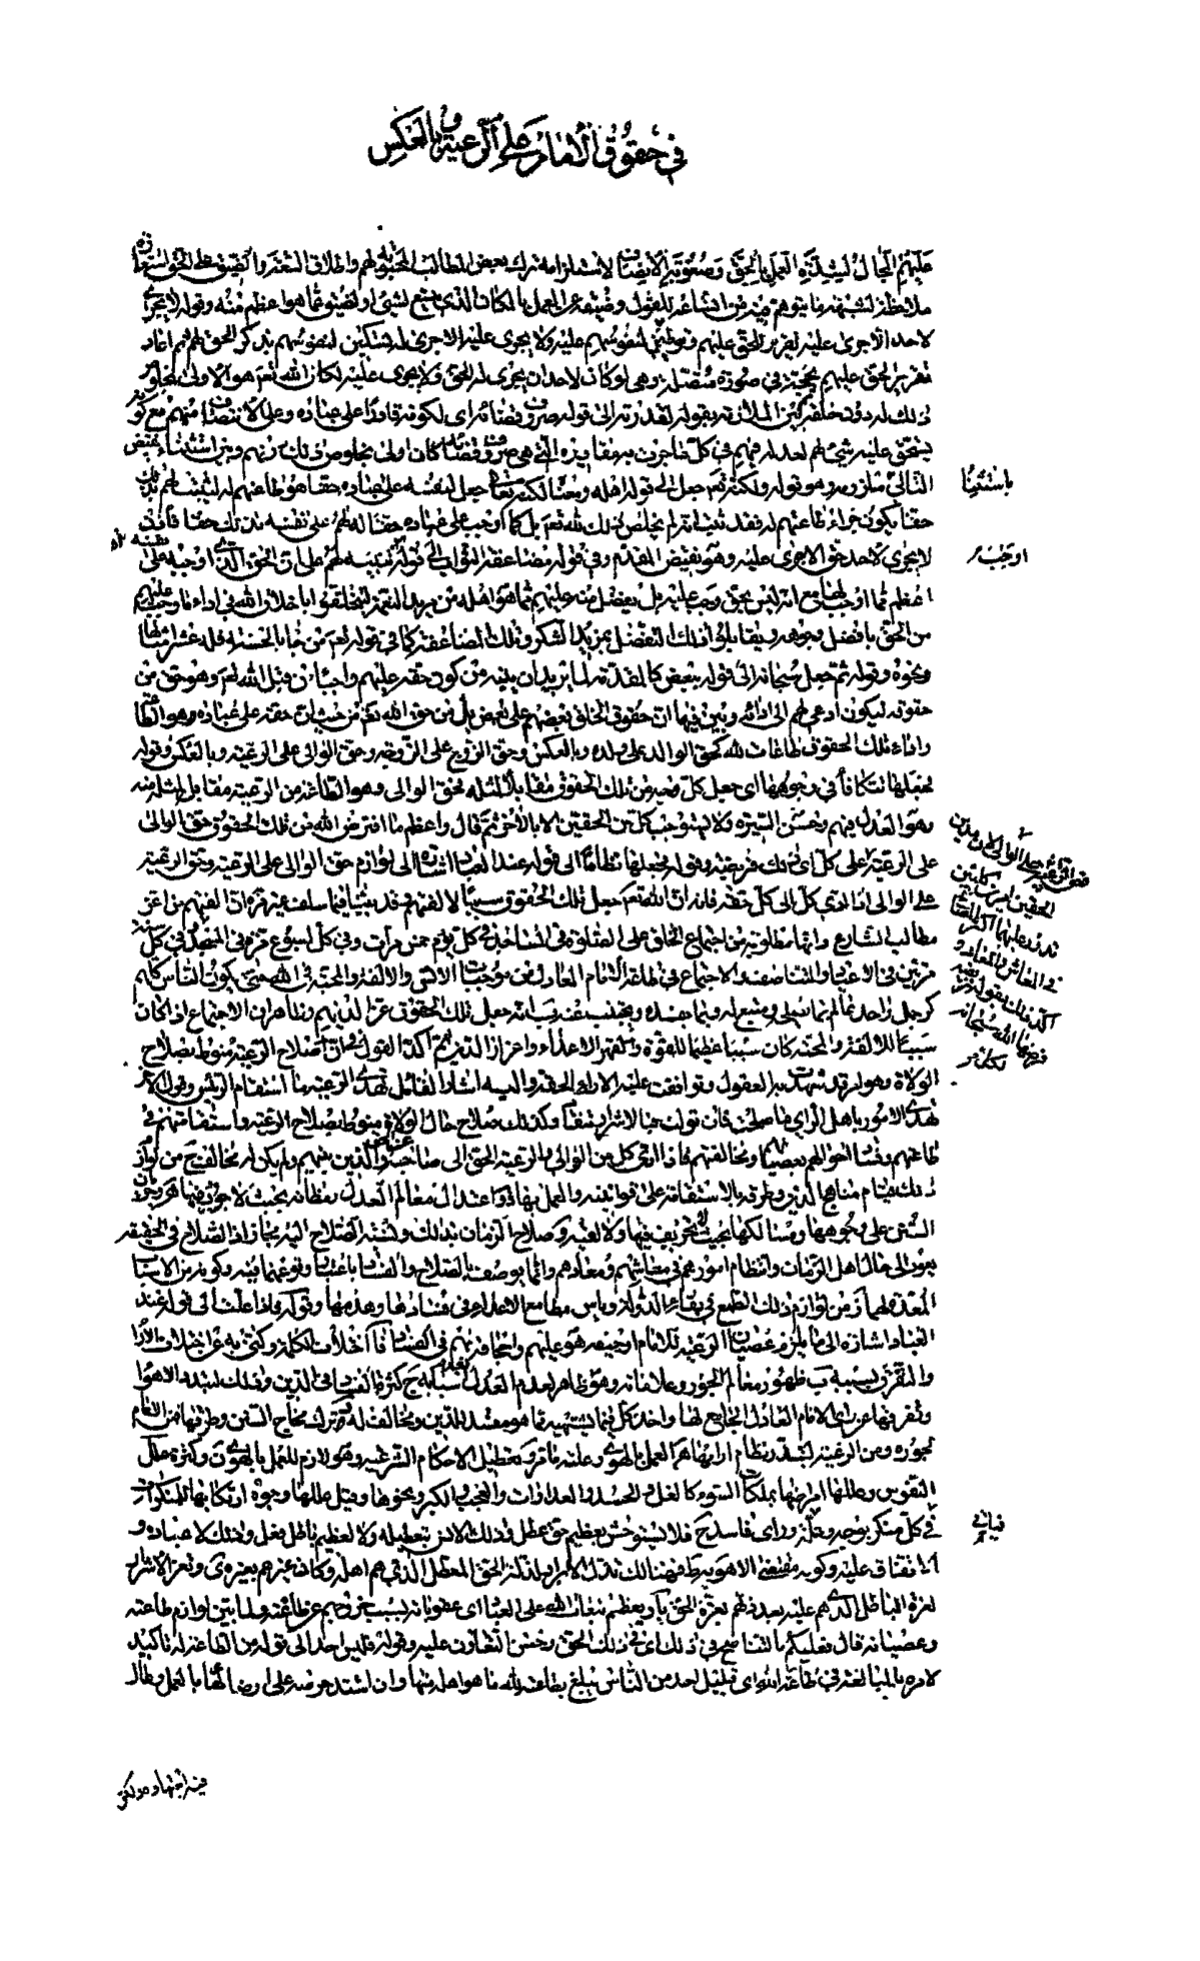 في حقوق الامام على الرعية وبالعكس
عليهم المجال ليشذ العمل بالحق وصعوبة الانصاف لاستلزامه ترك بعض المطالب المحبوبة لهم واطلاق السعة والضيق على الحق استعارة
ملاحظة لشبهه بما يتوهم فيه من اتساعه للقول وضيقه عن العمل بالمكان الذي يتسع لشيء او يضيق عما هو اعظم منه وقوله لا يجري
لاحد الا جرى عليه تقرير للحق عليهم وتوطين لنفوسهم عليه ولا يجري عليه الا جرى له تسكين لنفوسهم بذكر الحق لهم ثم اعاد
تقرير الحق عليهم بحجة في صورة متصلة وهي لو كان لاحد ان يجري له الحق ولا يجري عليه لكان الله تعم هو الاولى بخلوص
ذلك له دون خلقه وبين الملازمة بقوله لقدرته الى قوله صروف قضائه اي لكونه قادرا على عباده وعلى الانتصاف منهم مع كونه
يستحق عليه شيء لهم لعدله فيهم في كل ما جرت به مقاديره التي هي صروف قضائه كان اولى بخلوص ذلك دونهم وبين استثناء نقيض
التالي ملزومه وهو قوله ولكنه تعم جعل الى قوله اهله ومعنا لكنه تعالى جعل لنفسه على عباده حقا هو طاعتهم له ليثبت لهم بذلك
حقا يكون جزاء طاعتهم له فقد ثبت انه لم يخلص ذلك لله تعم بل كما اوجب على عباده حقا له لهم على نفسه بذلك حقا فاذن
لا يجري لاحد حق الا جرى عليه وهو نقيض المقدم وفي قوله مضاعفة الثواب الى قوله تنبيه لهم على ان الحق الذي اوجبه على نفسه
اعظم مما اوجب لها مع انه ليس بحق وجب عليه بل بفضل منه عليهم بما هو اهله من مزيد النعمة ليتخلقوا باخلاق الله في اداء ما وجب عليهم
من الحق بافضل وجوهه ويقابلوا ذلك التفضل بمزيد الشكر وتلك المضاعفة كما في قوله تعم من جا بالحسنة فله عشر امثالها
ونحوه وقوله ثم جعل سبحانه الى قوله ببعض كالمقدمة لما يريد ان يبينه من كون حقه عليهم واجبا من قبل الله تعم وهو حق من
حقوقه ليكون ادعى لهم الى ادائه وبين فيها ان حقوق الخلق بعضهم على بعض بل من حق الله تعم من حيث ان حقه على عباده وهو الطاعة
واداء تلك الحقوق طاعات لله كحق الوالد على ولده وبالعكس وحق الزوج على الزوجة وحق الوالي على الرعية وبالعكس وقوله
فجعلها تتكافأ في وجوهها اي جعل كل وجه من تلك الحقوق مقابلا لمثله فحق الوالي وهو الطاعة من الرعية مقابل لمثله منه
وهو العدل فيهم وحسن السيرة ولا يستوجب كل من الحقين الا بالآخر ثم قال واعظم ما افترض الله من تلك الحقوق حق الوالي
على الرعية على كل اي ذلك فريضة وقوله فجعلها نظاما الى قوله عند العباد اشارة الى لوازم حق الوالي على الرعية وحق الرعية
على الوالي اذا ادى كل الى كل حقه فانه ان الله تعم جعل تلك الحقوق سببا لالفتهم وقد بينا فيما سلف غير مرة ان الفتهم من اعز
مطالب الشارع وانها مطلوبة من اجتماع الخلق على الصلوة في المساجد في كل يوم خمس مرات وفي كل اسبوع مرة في الجمعة وفي كل سنة
مرتين في الاعياد والتناصف والاجتماع في طاعة الامام العادل من موجبات الانس والالفة والمحبة في الله حتى يكون الناس كلهم
كرجل واحد عالم بما يصلحه ومتبع له وبما يفسده ومجتنب عنه جعل تلك الحقوق عزا لدينهم وظاهر ان الاجتماع اذا كان
سببا للالفة والمحبة كان سببا عظيما للقوة والقهر الاعداء واعزاز الدين ثم اكد القول في ان اصلاح الرعية منوط بصلاح
الولاة وهو امر قد شهدت به العقول وتوافقت عليه الاراء الحقة واليه اشار القائل تهدى الرعية ما استقام الرئيس وقول الاخر
تهدى الامور باهل الراي ما صلحت فان تولت فبالاشرار تنقاد وكذلك صلاح حال الولاة منوط بصلاح الرعية واستقامتهم في
طاعتهم وفساد احوالهم بعصيانهم ومخالفتهم فاذا ادى كل من الوالي والرعية الحق الى صاحبه عز الدين بينهم ولم يكن له مخالف من لوازم
ذلك قيام مناهج الدين وطرقه بالاستقامة على قوانينه والعمل بها واعتدال معالم العدل مظانه بحيث لا جور فيها وجرت
السنن على وجوهها ومسالكها بحيث لا تحريف فيها ولا تغيير وصلاح الزمان بذلك ونسبة الصلاح اليه مجاز اذ الصلاح في الحقيقة
يعود الى حال اهل الزمان وانتظام امورهم في معاشهم ومعادهم وانما يوصف بالصلاح والفساد باعتبار وقوعهما فيه وكونه من الاسباب
المعدة لهما ومن لوازم ذلك الطمع في بقاء الدولة ويأس مطامع الاعداء في فسادها وهدمها وقوله فاذا غلبت الى قوله عند
العباد اشارة الى ما يلزم عصيان الرعية للامام او حيفه هو عليهم واجحافه بهم في الفساد فا اختلاف الكلمة وكني به عن اختلاف الآراء
والتفرق بسببه ب ظهور معالم الجور وعلاماته وهو ظاهر لعدم العدل بعد اسبابه ج كثرة الفساد في الدين وذلك لتبدد الاهواء
وتفرقها عن راي الامام العادل الجامع لها واخذ كل فيما يشتهيه مما هو مفسد للدين ومخالف له د ترك محاج السنن وطرقها من الامام
لجوره ومن الرعية لتبدد نظام ارائها ه العمل بالهوى وعلته ما مر و تعطيل الاحكام الشرعية وهو لازم للعمل بالهوى ز وكثرة علل
النفوس وعللها امراضها بملكات السوء كالغل والحسد والعداوات والعجب والكبر ونحوها وقيل عللها وجوه ارتكابها للمنكرات
في كل منكر بوجه وعلة وراي فاسد ح فلا يستوحش بعظيم حق عطل وذلك لانس بتعطيله ولا لعظيم باطل فعل وذلك لاعتياده و
الاتفاق عليه وكونه مقتضى الاهوية ط فهنالك تذل الابرار لذلة الحق المعطل الذي هم اهله وكان عزهم بعزه ى وتعز الاشرار
لعزة الباطل الذي هم عليه بعد ذلهم بعزة الحق يا وتعظم تبعات الله على العباد اي عقوباته بسبب خروجهم عن طاعته ولما بين لوازم طاعته
وعصيانه قال فعليكم بالتناصح في ذلك اي في ذلك الحق وحسن التعاون عليه وقوله فليس احد الى قوله من الطاعة له تاكيد
لامره بالمبالغة في طاعة الله اي فليس احد من الناس يبلغ بطاعته لله ما هو اهله منها وان اشتد حرصه على ارضائه بالعمل وطال
باستثناء
اوجب
على الرعية وحق
الحقين امر كلي
تدور عليها اكثر المصالح
في المعاش والمعاد و
اكد ذلك بقوله فريضة
فرضها الله سبحانه
لكل
فيأتي
فيه اجتهاده ولكن